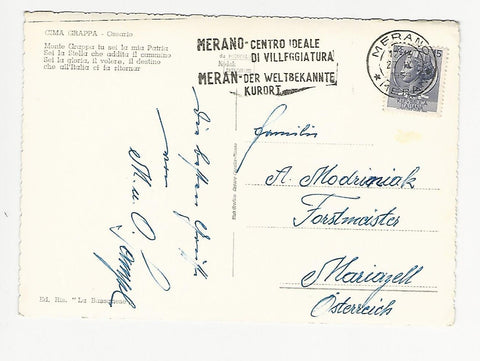 CIMA GRAPPA - Ossario
Monte Grappa tu sei la mia Patria
Sei la Stella che addita il cammino
Sei la gloria, il volere, il destino
che all'Italia ci fa ritornar
MERANO - CENTRO IDEALE
DI VILLEGGIATURA
MERAN - DER WELTBEKANNTE
KURORT
MERANO
MERAN
15
Die besten Grüße
von
M. u. O.
Familie
A. Modriniak
Forstmeister
Mariazell
Österreich
Ed. Ris. "La Bassanese"